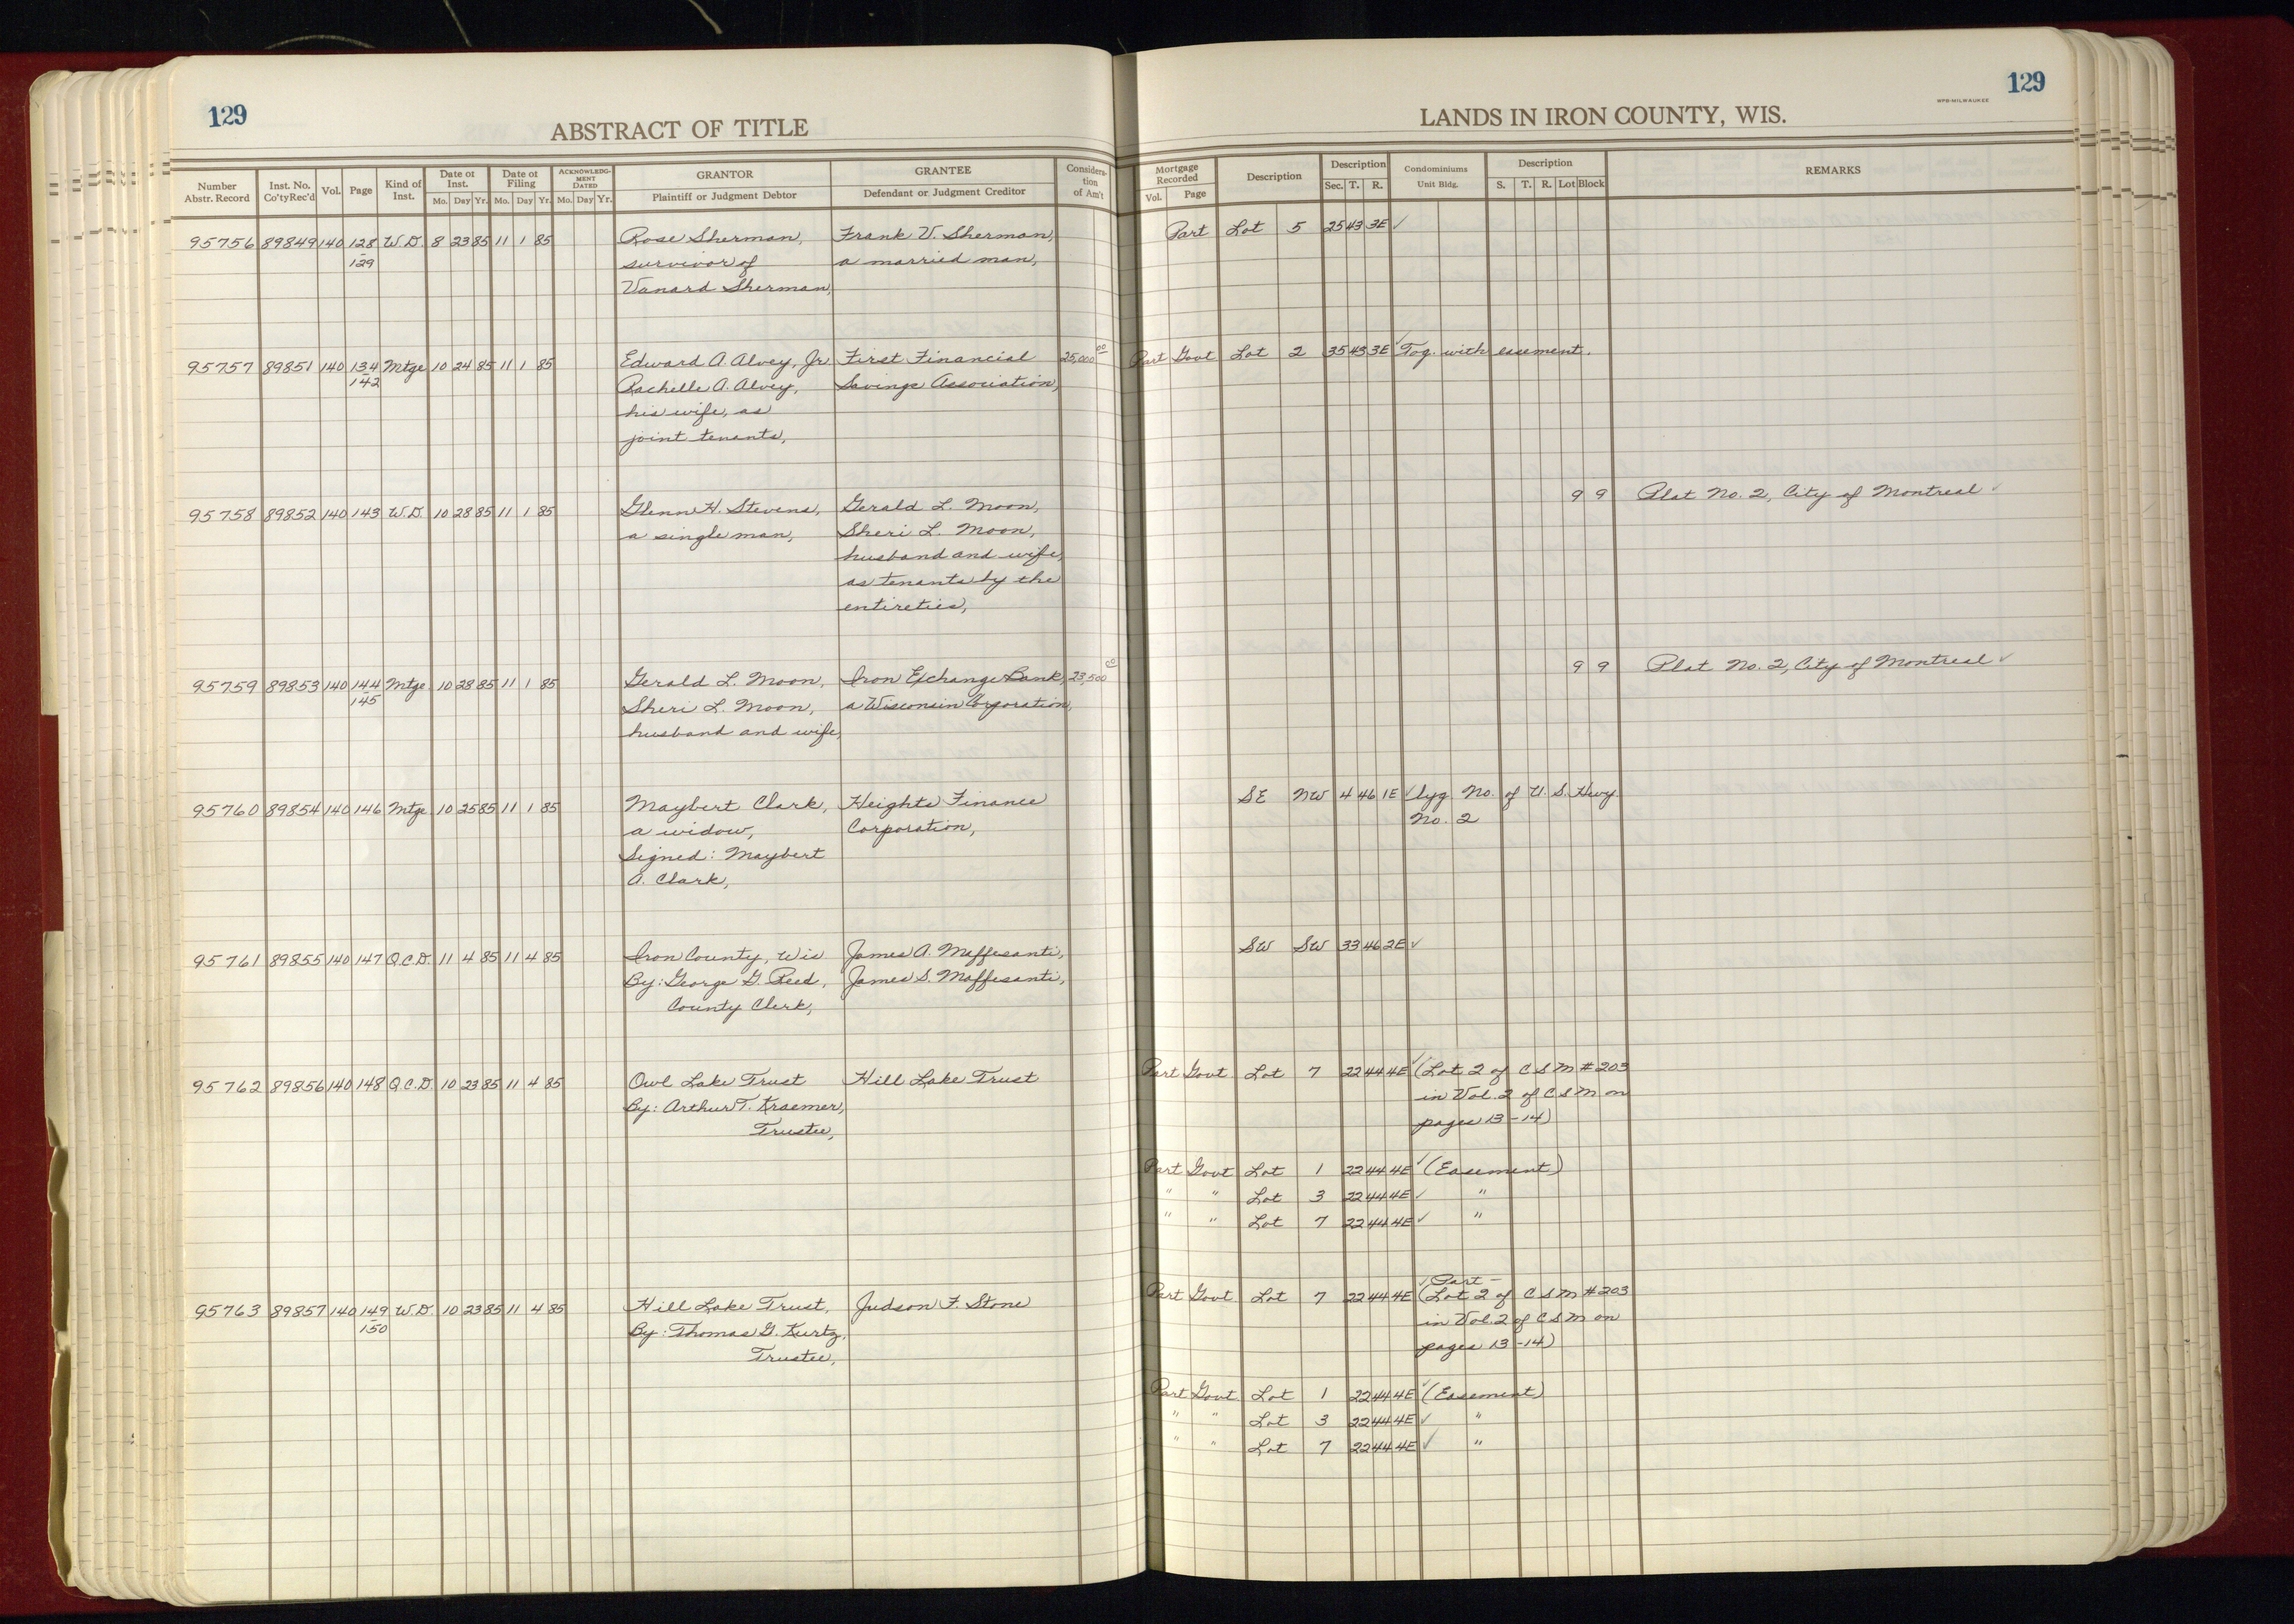 129
ABSTRACT OF TITLE
Number Abstr. Record Inst. No. Co'ty Rec'd Vol. Page Kind of Inst. Date of Inst. Mo. Day Yr. Date of Filing Mo. Day Yr. ACKNOWLEDGMENT DATED Mo. Day Yr. GRANTOR Plaintiff or Judgment Debtor GRANTEE Defendant or Judgment Creditor Consideration of Am't
95756 89849 140 128 W.D. 8 23 85 11 1 85 Rose Sherman, Frank V. Sherman,
129 survivor of a married man,
Vanard Sherman,
95757 89851 140 134 Mtge 10 24 85 11 1 85 Edward A. Alvey, Jr. First Financial 25,000 00
142 Rachelle A. Alvey, Savings Association,
his wife, as
joint tenants,
95758 89852 140 143 W.D. 10 28 85 11 1 85 Glenn H. Stevens, Gerald L. Moon,
a single man, Sheri L. Moon,
husband and wife,
as tenants by the
entireties,
95759 89853 140 144 Mtge. 10 28 85 11 1 85 Gerald L. Moon, Iron Exchange Bank, 23,500 00
145 Sheri L. Moon, a Wisconsin Corporation,
husband and wife,
95760 89854 140 146 Mtge 10 25 85 11 1 85 Maybert Clark, Heights Finance
a widow, Corporation,
Signed: Maybert
A. Clark,
95761 89855 140 147 Q.C.D. 11 4 85 11 4 85 Iron County, Wis James A. Maffesanti,
By: George G. Reed, James S. Maffesanti,
County Clerk,
95762 89856 140 148 Q.C.D. 10 23 85 11 4 85 Owl Lake Trust Hill Lake Trust
By: Arthur T. Kraemer,
Trustee,
95763 89857 140 149 W.D. 10 23 85 11 4 85 Hill Lake Trust, Judson F. Stone
150 By: Thomas G. Kurtz,
Trustee,
129
WPB-MILWAUKEE
LANDS IN IRON COUNTY, WIS.
Mortgage Recorded Vol. Page Description Description Sec. T. R. Condominiums Unit Bldg. Description S. T. R. Lot Block REMARKS
Part Lot 5 25 43 3E ✓
Part Govt Lot 2 35 43 3E ✓ Tog. with easement.
9 9 Plat No. 2, City of Montreal ✓
9 9 Plat No. 2, City of Montreal ✓
SE NW 4 46 1E ✓ lyg No. of U.S. Hwy.
No. 2
SW SW 33 46 2E ✓
Part Govt Lot 7 22 44 4E ✓ (Lot 2 of CSM #203
in Vol. 2 of CSM on
pages 13-14)
Part Govt Lot 1 22 44 4E ✓ (Easement)
" " Lot 3 22 44 4E ✓ "
" " Lot 7 22 44 4E ✓ "
✓ Part -
Part Govt Lot 7 22 44 4E (Lot 2 of CSM #203
in Vol. 2 of CSM on
pages 13-14)
Part Govt. Lot 1 22 44 4E ✓ (Easement)
" " Lot 3 22 44 4E ✓ "
" " Lot 7 22 44 4E ✓ "